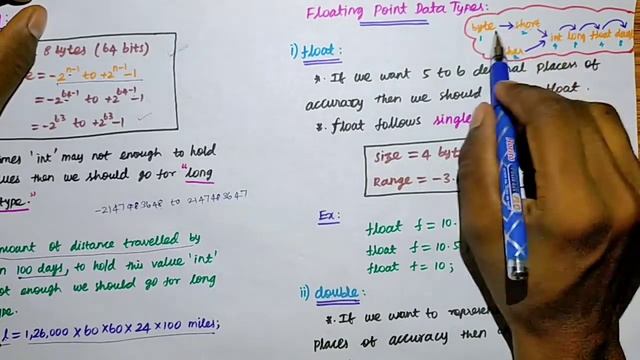 8 bytes (64 bits)
= -2^n-1 to +2^n-1 -1
= -2^64-1 to +2^64-1 -1
= -2^63 to +2^63 -1
'int' may not enough to hold
then we should go for "long
type."
-2147483648 to 2147483647
amount of distance travelled by
100 days, to hold this value 'int'
not enough we should go for long
l = 1,26,000 × 60 × 60 × 24 × 100 miles;
Floating Point Data Types:
byte → short
1 2
int long float double
4 8 4 8
i) float:
*. If we want 5 to 6 decimal places of
accuracy then we should float.
*. float follows single
Size = 4
Range = -3.
Ex:
float f = 10.
float f = 10.5
float f = 10;
ii) double:
*. If we want to
places of accuracy then